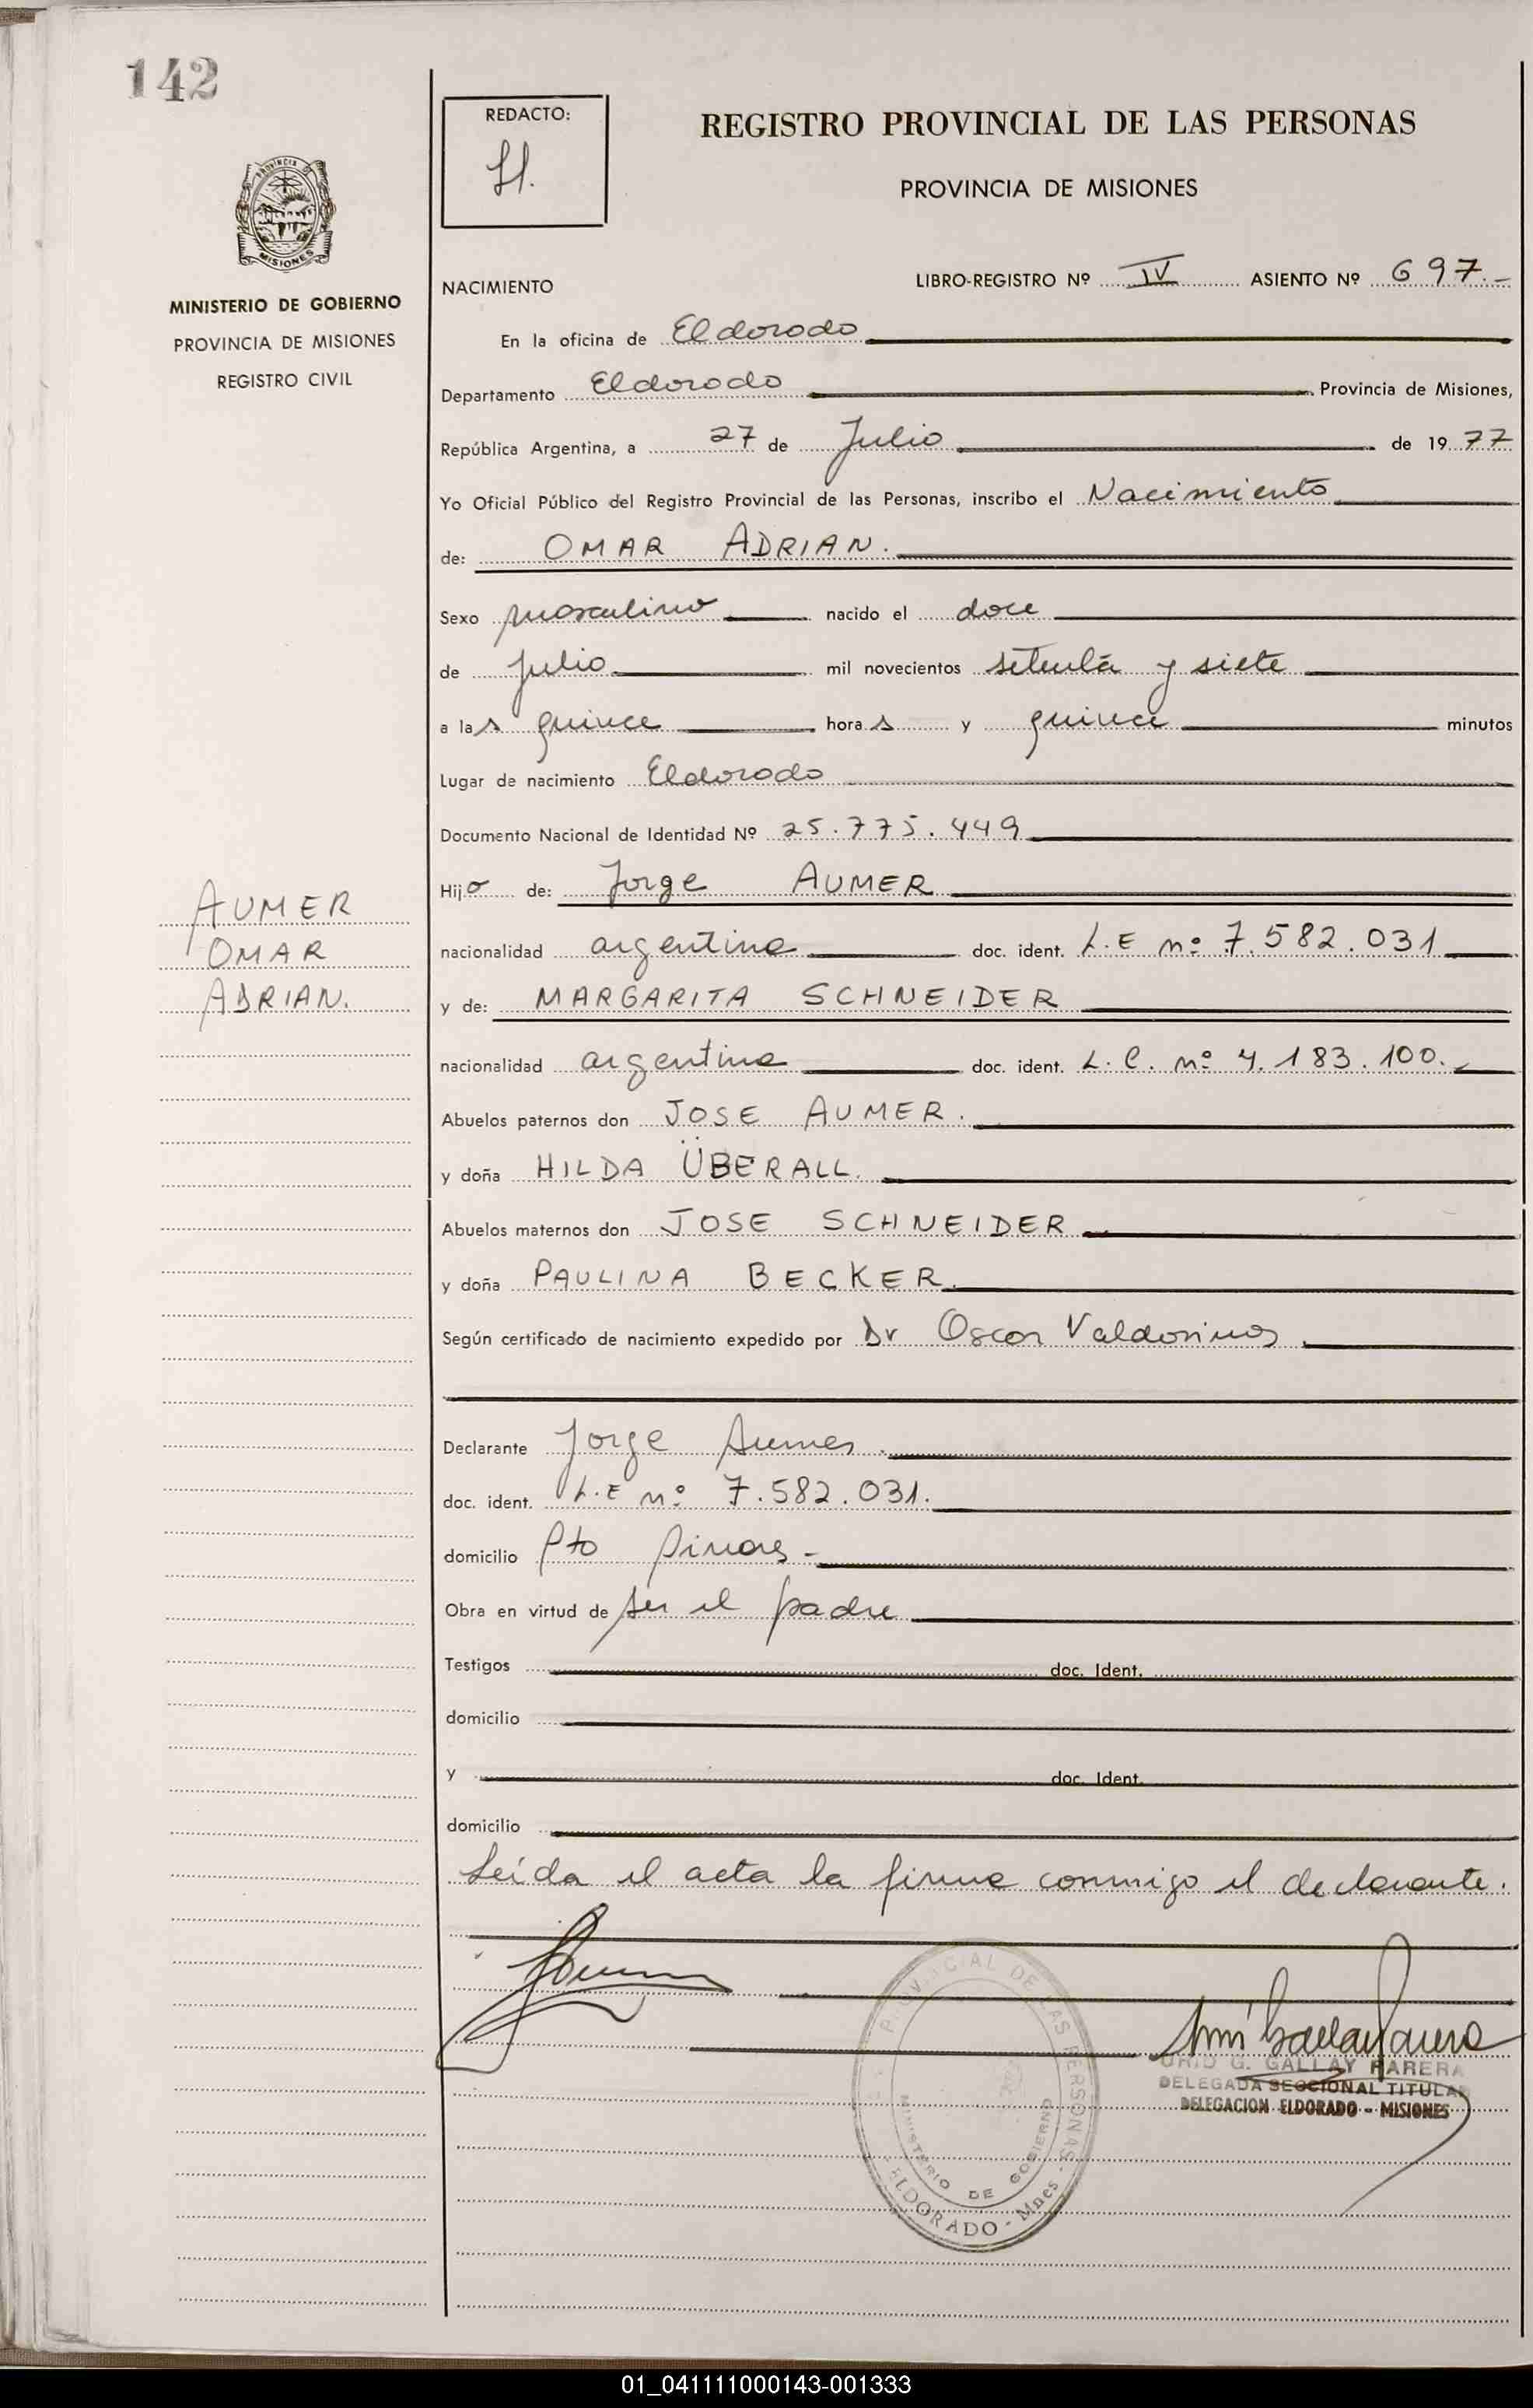 142
REDACTO:
REGISTRO PROVINCIAL DE LAS PERSONAS
PROVINCIA DE MISIONES
PROVINCIA
MISIONES
MINISTERIO DE GOBIERNO
PROVINCIA DE MISIONES
REGISTRO CIVIL
NACIMIENTO LIBRO-REGISTRO Nº IV ASIENTO Nº 697.-
En la oficina de Eldorado
Departamento Eldorado Provincia de Misiones,
República Argentina, a 27 de Julio de 1977
Yo Oficial Público del Registro Provincial de las Personas, inscribo el Nacimiento
de: OMAR ADRIAN.
Sexo masculino nacido el doce
de julio mil novecientos setenta y siete
a las quince horas y quince minutos
Lugar de nacimiento Eldorado
Documento Nacional de Identidad Nº 25.775.449
Hijo de: Jorge AUMER
AUMER
OMAR
ADRIAN.
nacionalidad argentina doc. ident. L.E nº 7.582.031
y de: MARGARITA SCHNEIDER
nacionalidad argentina doc. ident. L.C. nº 4.183.100.
Abuelos paternos don JOSE AUMER.
y doña HILDA ÜBERALL.
Abuelos maternos don JOSE SCHNEIDER
y doña PAULINA BECKER.
Según certificado de nacimiento expedido por Dr Oscar Valdovinos
Declarante Jorge Aumer.
doc. ident. L.E nº 7.582.031.
domicilio Pto Pinares-
Obra en virtud de ser el padre
Testigos doc. Ident.
domicilio
y doc. Ident.
domicilio
Leída el acta la firma conmigo el declarante.
PROVINCIAL DE LAS PERSONAS -
MINISTERIO DE GOBIERNO
ELDORADO - Mnes
G. GALLAY PARERA
DELEGADA SECCIONAL TITULAR
DELEGACION ELDORADO - MISIONES
01_041111000143-001333